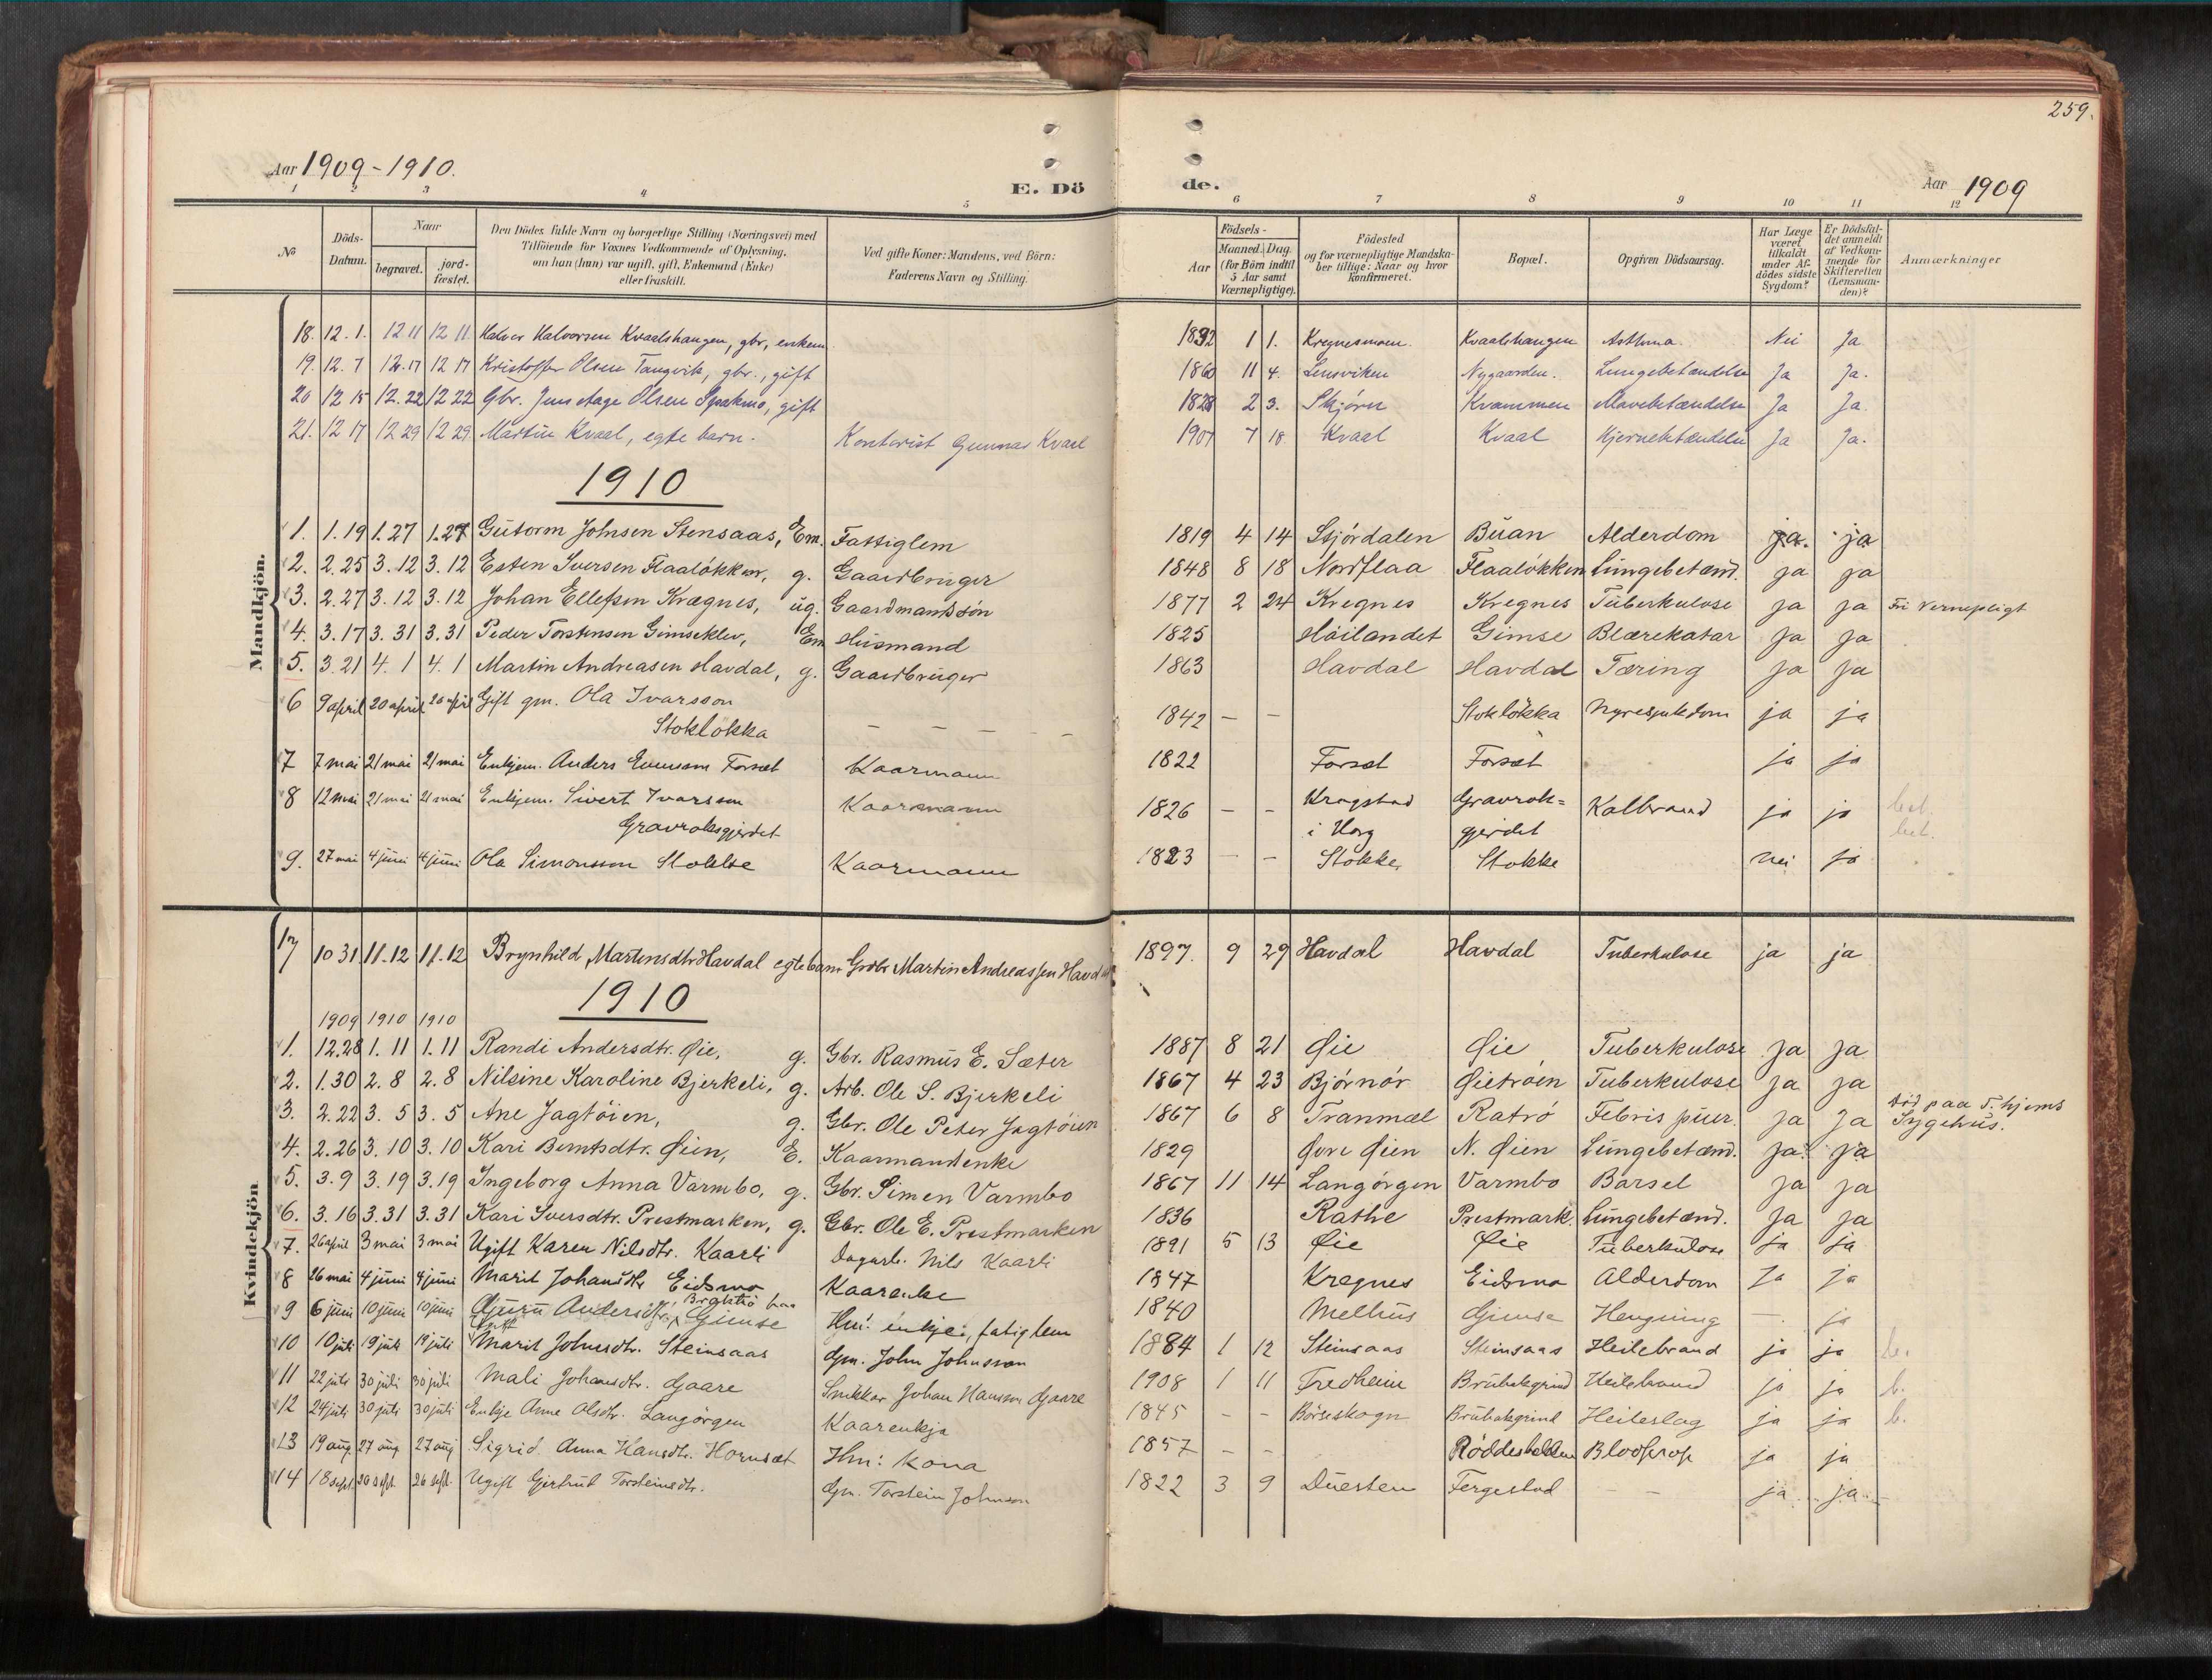 259.
Aar 1909-1910.
E. Dö
de.
Aar 1909
1 2 3 4 5 6 7 8 9 10 11 12
No
Döds-Datum.
Naar
begravet.
jord-fæstet.
Den Dödes fulde Navn og borgerlige Stilling (Næringsvei) med
Tilföiende for Voxnes Vedkommende af Oplysning,
om han (hun) var ugift, gift, Enkemand (Enke)
eller fraskilt.
Ved gifte Koner: Mandens, ved Börn:
Faderens Navn og Stilling.
Aar
Födsels-
Maaned. Dag.
(for Börn indtil
5 Aar samt
Værnepligtige).
Födested
og for værnepligtige Mandskaber tillige: Naar og hvor
konfirmeret.
Bopæl.
Opgiven Dödsaarsag.
Har Læge
været
tilkaldt
under Afdödes sidste
Sygdom?
Er Dödsfaldet anmeldt
af Vedkommende for
Skifteretten
(Lensmanden)?
Anmærkninger
Mandkjön.
18. 12. 1. 12 11 12 11. Halvor Halvorsen Kvaalshaugen, gbr, enkem 1832 1 1. Kregnesmoen. Kvaalshaugen Asthma. Nei Ja
19. 12. 7 12. 17 12 17 Kristoffer Olsen Tangvik, gbr., gift 1860 11 4. Lensviken Nygaarden. Lungebetændelse Ja Ja.
20 12 15 12. 22 12 22 Gbr. Jens Aage Olsen, gift 1828 2 3. Skjörn Kvammen Mavebetændelse Ja Ja.
21. 12 17 12 29 12 29. Martin Kvaal, egte barn. Kontorist Gunnar Kvaal 1907 7 18 Kvaal Kvaal Hjernebetændelse Ja Ja.
1910
1. 1.19 1.27 1.27 Gutorm Johnsen Stensaas, Em. Fattiglem 1819 4 14 Stjördalen Buan Alderdom ja. ja
2. 2.25 3.12 3.12 Esten Iversen Flaalökken, g. Gaardbruger 1848 8 18 Nordflaa Flaalökken Lungebetænd. ja ja
3. 2.27 3.12 3.12 Johan Ellefsen Krægnes, ug. Gaardmandssön 1877 2 24 Kregnes Kregnes Tuberkulose ja ja Fri Vernepligt
4. 3.17 3.31 3.31 Peder Torstensen Gimseklev, Em Husmand 1825 Höilandet Gimse Blærekatar ja ja
5. 3.21 4.1 4.1 Martin Andreasen Havdal, g. Gaardbruger 1863 Havdal Havdal Tæring ja ja
6 9 april 20 april 20 april Gift gm. Ola Ivarsson
Stoklökka - - - - 1842 - - Stoklökka Nyresjukdom ja ja
7 7 mai 21 mai 21 mai Enkjem. Anders Forset Kaarmann 1822 Forset Forset ja ja
8 12 mai 21 mai 21 mai Enkjem. Sivert Ivarsson Kaarmann 1826 - - Kragstad Gravrok= Kolbrand ja ja bet.
Gravroksgjerdet i Horg gjerdet bet.
9. 27 mai 4 juni 4 juni Ola Simonsson Stokke Kaarmann 1823 - - Stokke Stokke nei ja
Kvindekjön
17 10 31 11.12 11.12 Brynhild Martinsdtr Havdal egte barn Grdbr Martin Andreassen Havdal 1897. 9 29 Havdal Havdal Tuberkulose ja ja
1910
1909 1910 1910
1. 12.28 1.11 1.11 Randi Andersdtr. Øie, g. Gbr. Rasmus E. Sæter 1887 8 21 Øie Øie Tuberkulose ja ja
2. 1.30 2.8 2.8 Nilsine Karoline Bjerkeli, g. Arb. Ole S. Bjerkeli 1867 4 23 Björnör Øietröen Tuberkulose ja ja
3. 2.22 3.5 3.5 Ane Jagtöien, g. Gbr. Ole Peter Jagtöien 1867 6 8 Tranmæl Ratrö Febris puer. ja ja död paa T.hjems
Sygehus.
4. 2.26 3.10 3.10 Kari Berntsdtr. Øien, E. Kaarmandenke 1829 Øvre Øien N. Øien Lungebetænd. ja ja
5. 3.9 3.19 3.19 Ingeborg Anna Varmbo, g. Gbr. Simen Varmbo 1867 11 14 Langörgen Varmbo Barsel ja ja
6. 3.16 3.31 3.31 Kari Iversdtr. Prestmarken, g. Gbr. Ole E. Prestmarken 1836 Rathe Prestmark. Lungebetænd. ja ja
7. 26 april 3 mai 3 mai Ugift Karen Nilsdtr. Kaarli Dagarb. Nils Kaarli 1891 5 13 Øie Øie Tuberkulose ja ja
8 26 mai 4 juni 4 juni Marit Johansdtr Eidsmo Kaarenke 1847 Kregnes Eidsmo Alderdom ja ja
9 6 juni 10 juni 10 juni Guru Andersdtr. Gimse Hm: enkje, fatiglem 1840 Melhus Gimse Hengning - ja
10 10 juli 19 juli 19 juli Gift Marit Johnsdtr. Steinsaas Gm. John Johnsson 1884 1 12 Steinsaas Steinsaas Heilebrand ja ja b.
11 22 juli 30 juli 30 juli Mali Johansdtr. Gaare Snikkar Johan Hansson Gaare 1908 1 11 Fredheim Brubakgrind Heilebrand ja ja b.
12 24 juli 30 juli 30 juli Enkje Anne Olsdtr. Langörgen Kaarenkja 1845 - - Börseskogn Brubakgrind Heileslag ja ja b.
13 19 aug. 27 aug. 27 aug Sigrid Anna Hansdtr. Hornset Hm: kona 1857 - - Röddesbakken Blodprop ja ja
14 18 sept. 26 sept. 26 sept. Ugift Gjertrud Torsteinsdtr. Gm. Torstein Johnson 1822 3 9 Duesten Fergestad - - ja ja